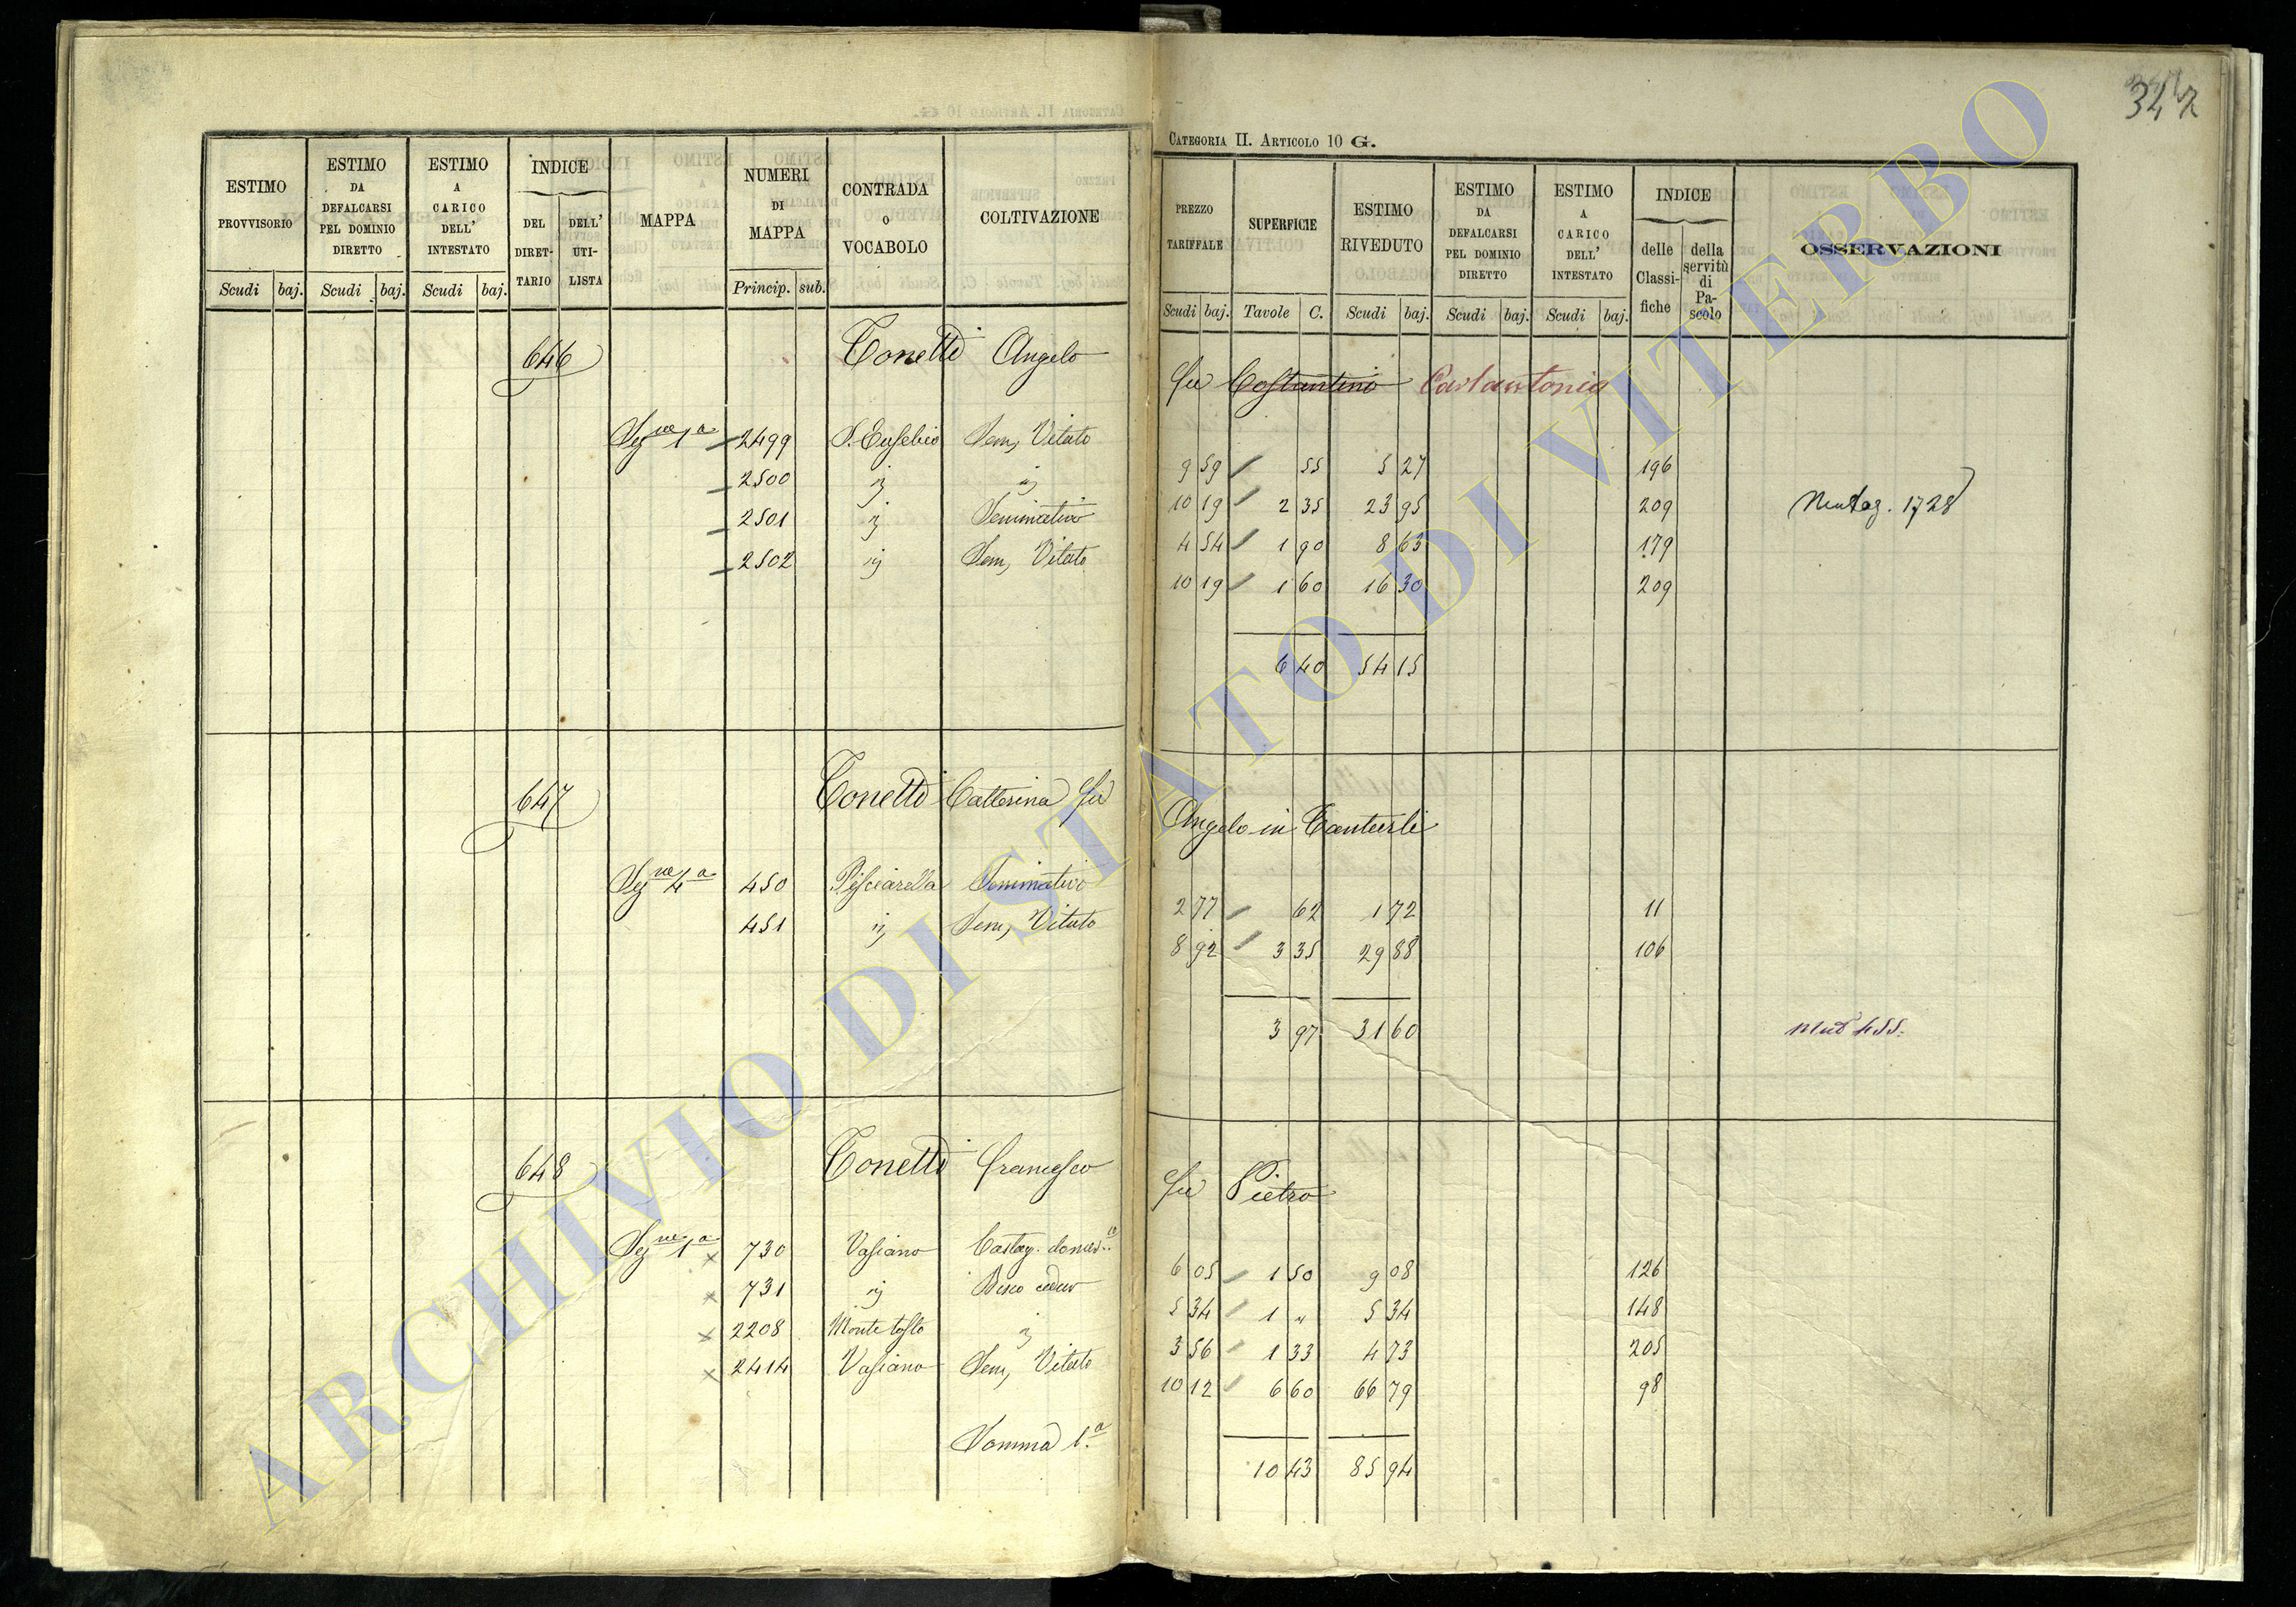 347
CATEGORIA II. ARTICOLO 10 G.
ESTIMO PROVVISORIO
ESTIMO DA DEFALCARSI PEL DOMINIO DIRETTO
ESTIMO A CARICO DELL' INTESTATO
INDICE
DEL DIRETTARIO
DELL' UTILISTA
MAPPA
NUMERI DI MAPPA
CONTRADA O VOCABOLO
COLTIVAZIONE
Scudi baj. Scudi baj. Scudi baj. Princip. sub.
PREZZO TARIFFALE
SUPERFICIE
ESTIMO RIVEDUTO
ESTIMO DA DEFALCARSI PEL DOMINIO DIRETTO
ESTIMO A CARICO DELL' INTESTATO
INDICE
delle Classifiche
della servitù di Pascolo
OSSERVAZIONI
Scudi baj. Tavole C. Scudi baj. Scudi baj. Scudi baj.
646 Tonetti Angelo fu Costantino Carlantonio
Sezne 1a 2499 S. Eusebio Sem, Vitato 9 59 55 5 27 196
2500 ij ij 10 19 2 35 23 95 209
2501 ij Seminativo 4 54 1 90 8 63 179
2502 ij Sem, Vitato 10 19 1 60 16 30 209
1728
6 40 54 15
647 Tonetti Catterina fu Angelo in
Sezne 4a 450 Pisciarella Seminativo 2 77 62 1 72 11
451 ij Sem, Vitato 8 92 3 35 29 88 106
3 97 31 60
Mut 455.
648 Tonetti Francesco fu Pietro
Sezne 1a 730 Vasiano Castag. domes.co 6 05 1 50 9 08 126
731 ij Bosco ceduo 5 34 1 " 5 34 148
2208 Monte tosto ij 3 56 1 33 4 73 205
2414 Vasiano Sem, Vitato 10 12 6 60 66 79 98
Somma 1.a 10 43 85 94
ARCHIVIO DI STATO DI VITERBO